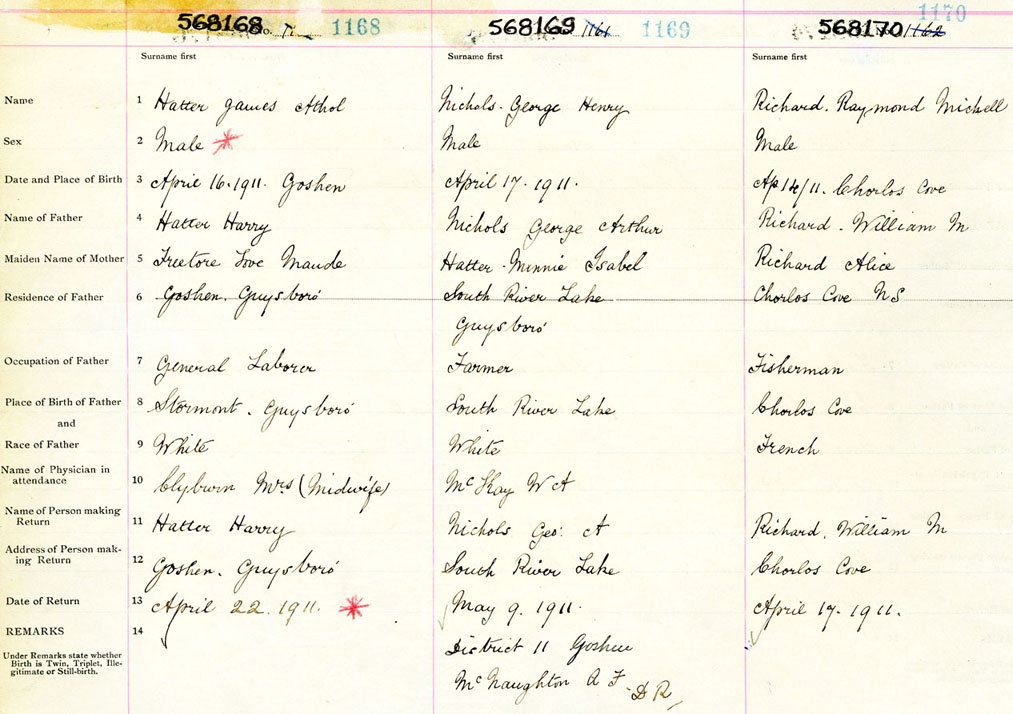 568168 No. 1168
568169 1161 1169
568170 No. 1162 1170
Surname first Surname first Surname first
Name 1 Hatter James Athol Nichols. George Henry Richard. Raymond Mickell
Sex 2 Male Male Male
Date and Place of Birth 3 April 16.1911. Goshen April 17. 1911. Ap 14/11. Chorlos Cove
Name of Father 4 Hatter Harry Nichols George Arthur Richard. William M
Maiden Name of Mother 5 Treetore Love Maude Hatter. Minnie Isabel Richard Alice
Residence of Father 6 Goshen. Guysboro' South River Lake Chorlos Cove NS
Guysboro'
Occupation of Father 7 General Laborer Farmer Fisherman
Place of Birth of Father 8 Stormont. Guysboro' South River Lake Chorlos Cove
and
Race of Father 9 White White French
Name of Physician in
attendance 10 Clyburn Mrs (Midwife) McKay W A
Name of Person making
Return 11 Hatter Harry Nichols Geo. A Richard. William M
Address of Person mak-
ing Return 12 Goshen. Guysboro' South River Lake Chorlos Cove
Date of Return 13 April 22. 1911. May 9. 1911. April 17. 1911.
REMARKS 14
Under Remarks state whether
Birth is Twin, Triplet, Ille-
gitimate or Still-birth.
District 11 Goshen
McNaughton A F. D R